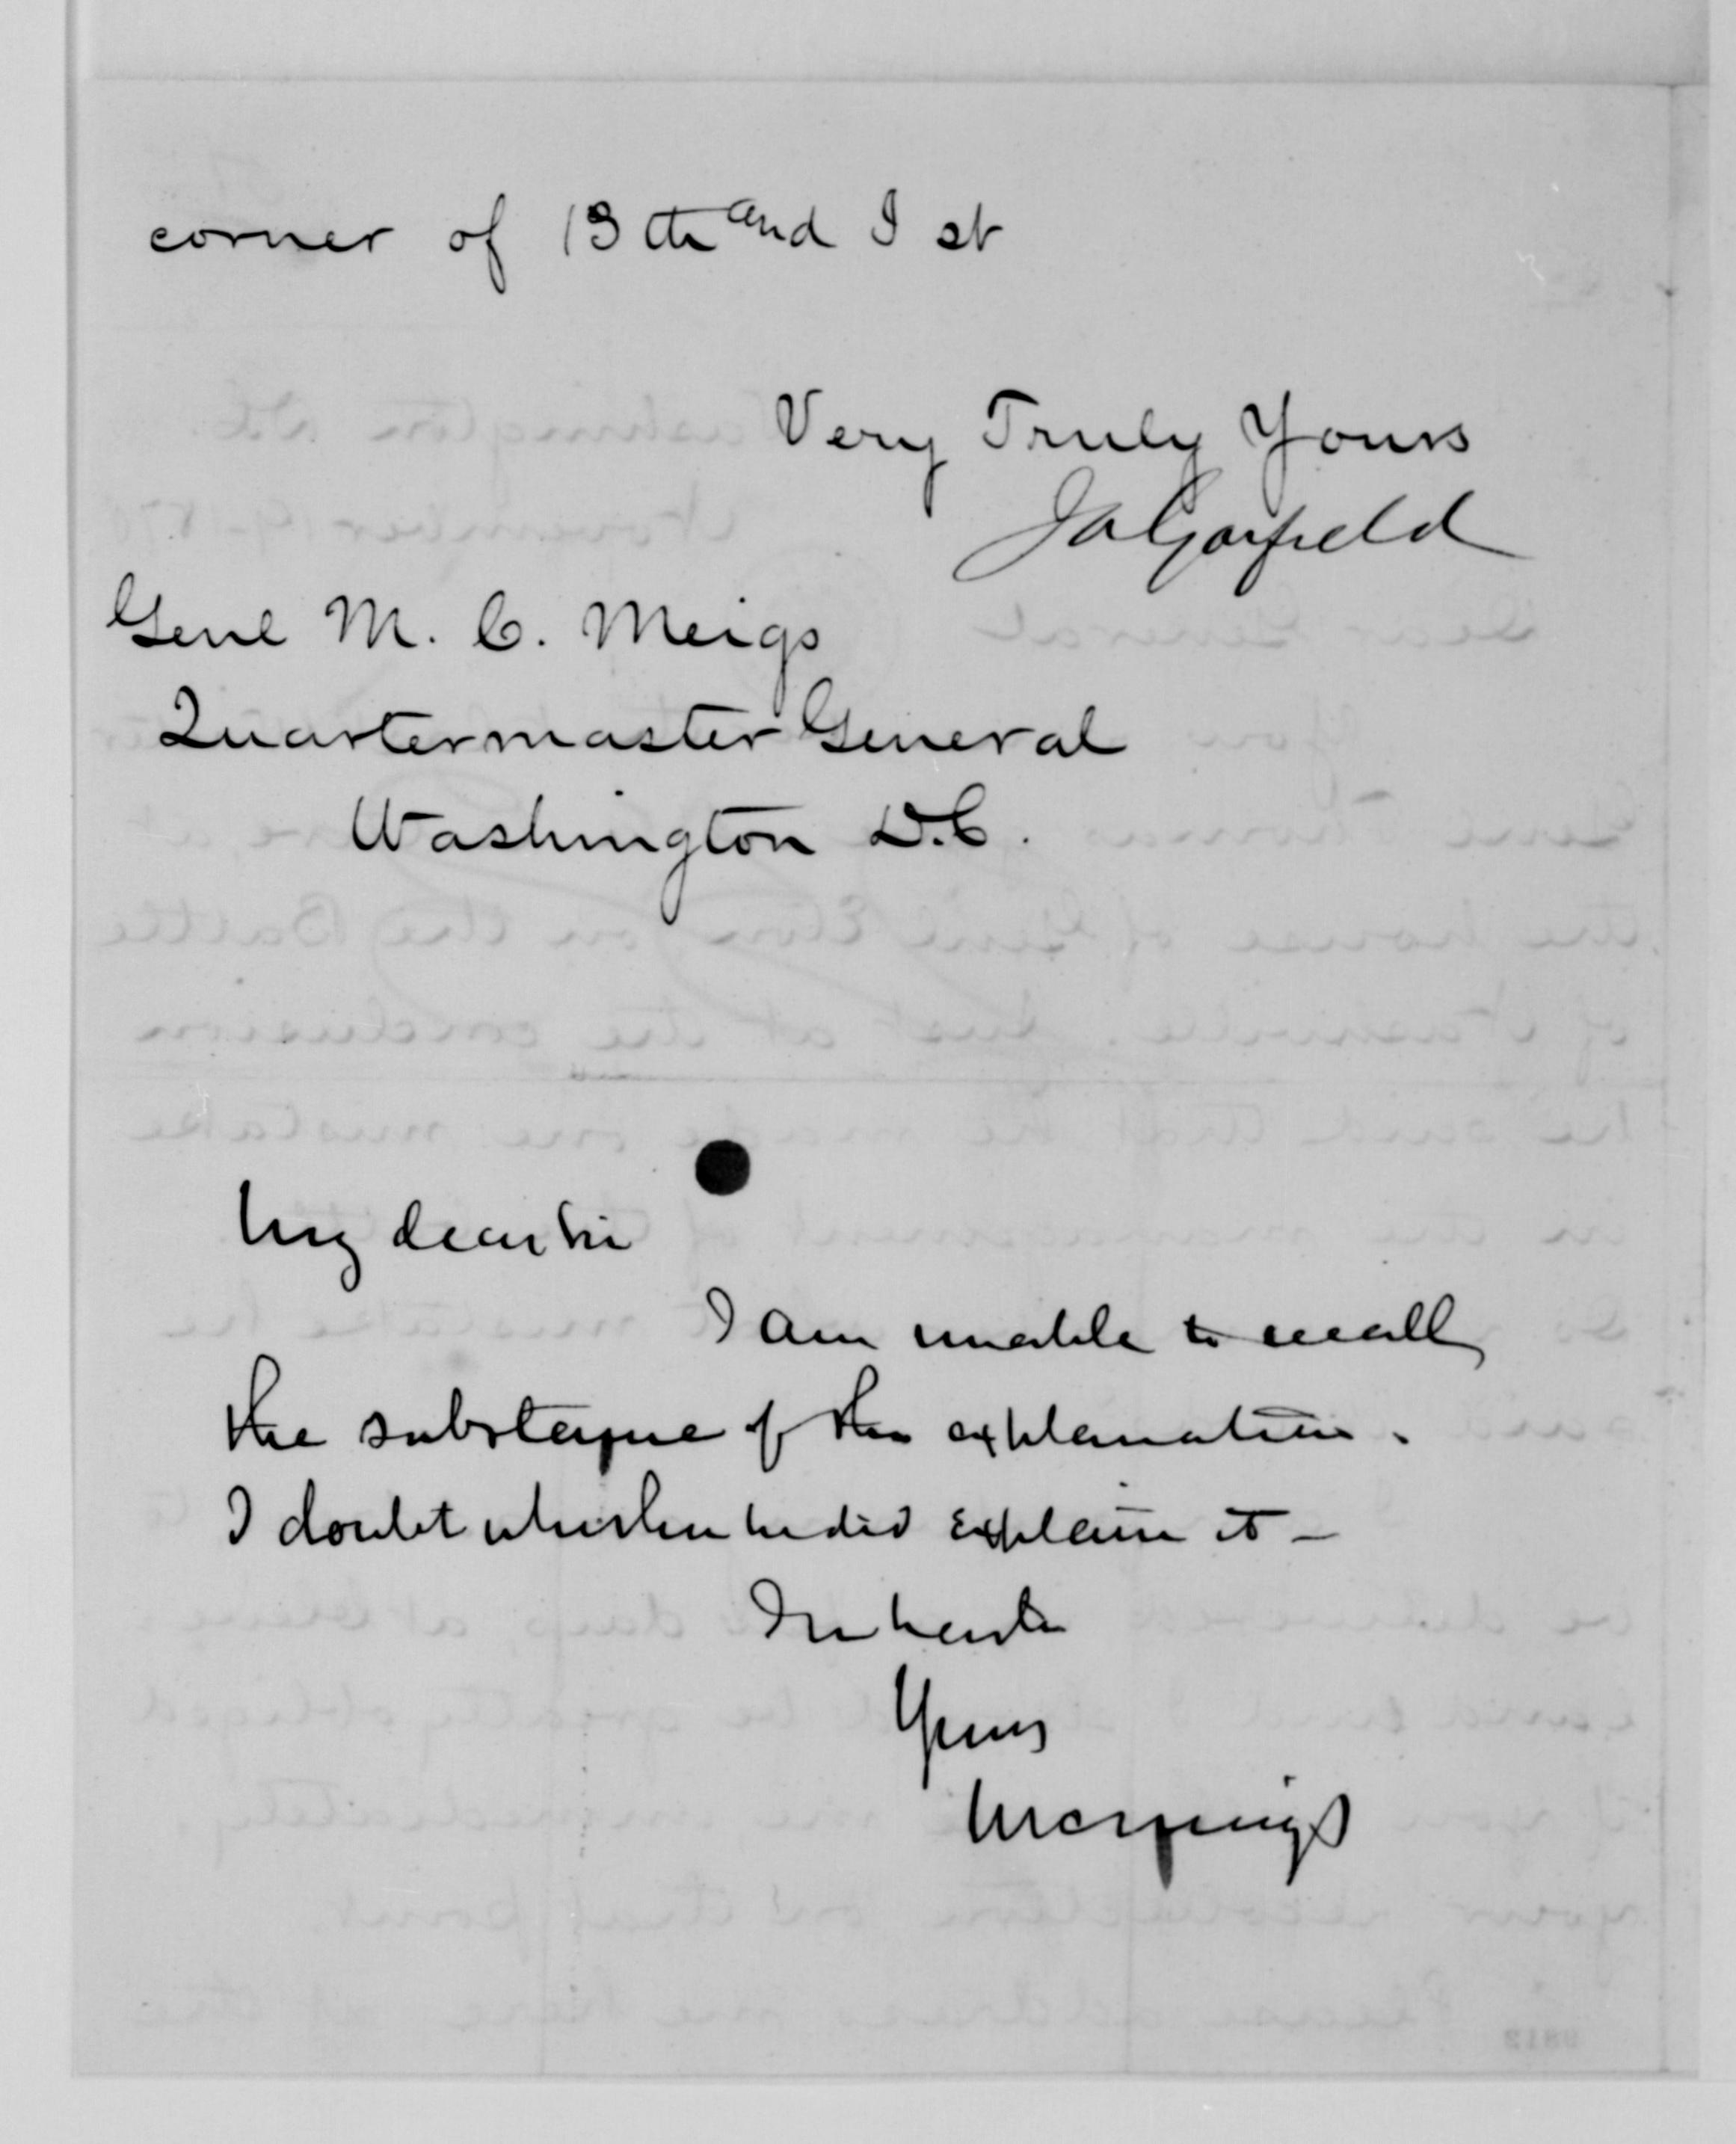 corner of 13th and I st
Very Truly Yours
JAGarfield
Genl M. C. Meigs
Quartermaster General
Washington D.C.
My dear Sir
I am unable to recall
the substance of the explanation.
I doubt whether he did explain it –
In haste
Yours
MCMeigs